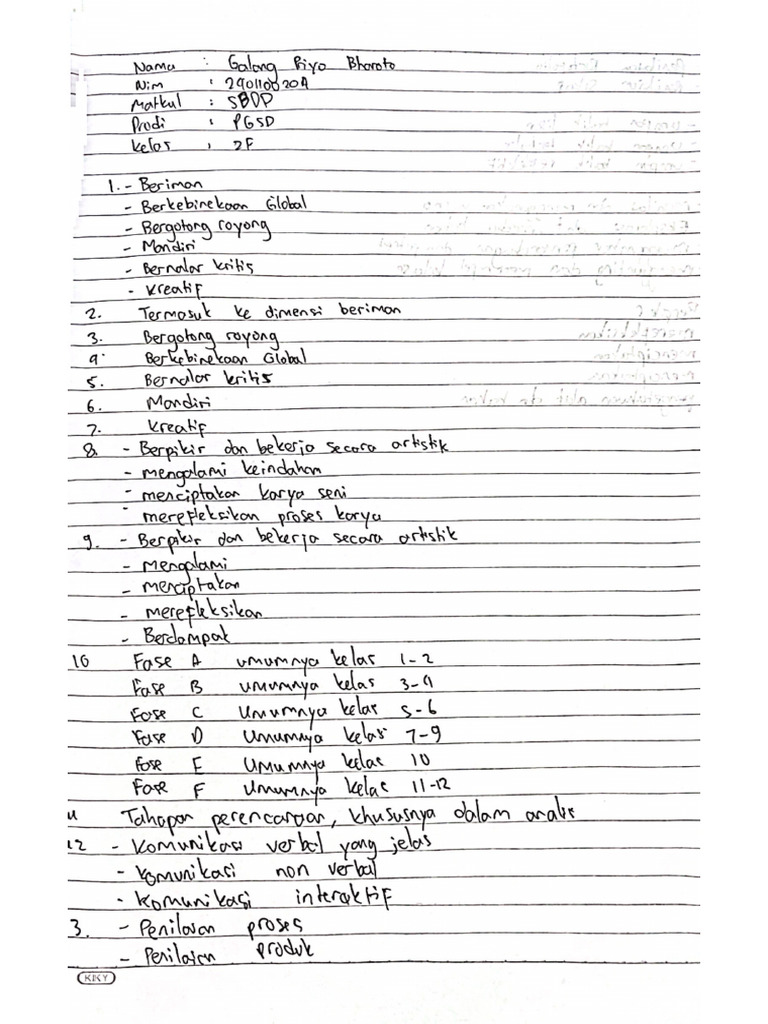 Nama : Galang Riyo Bharoto
Nim : 2401100204
Matkul : SBDP
Prodi : PGSD
Kelas : 2F
1. - Beriman
- Berkebinekaan Global
- Bergotong royong
- Mandiri
- Bernalar kritis
- Kreatif
2. Termasuk ke dimensi beriman
3. Bergotong royong
4. Berkebinekaan Global
5. Bernalar kritis
6. Mandiri
7. Kreatif
8. - Berpikir dan bekerja secara artistik
- mengalami keindahan
- menciptakan karya seni
- merefleksikan proses karya
9. - Berpikir dan bekerja secara artistik
- Mengalami
- menciptakan
- merefleksikan
- Berdampak
10 Fase A umumnya kelas 1-2
Fase B umumnya kelas 3-4
Fase C Umumnya kelas 5-6
Fase D Umumnya kelas 7-9
Fase E Umumnya kelas 10
Fase F Umumnya kelas 11-12
11 Tahapan perencanaan, khususnya dalam
12 - Komunikasi verbal yang jelas
- Komunikasi non verbal
- Komunikasi interaktif
3. - Penilaian proses
- Penilaian produk
KIKY